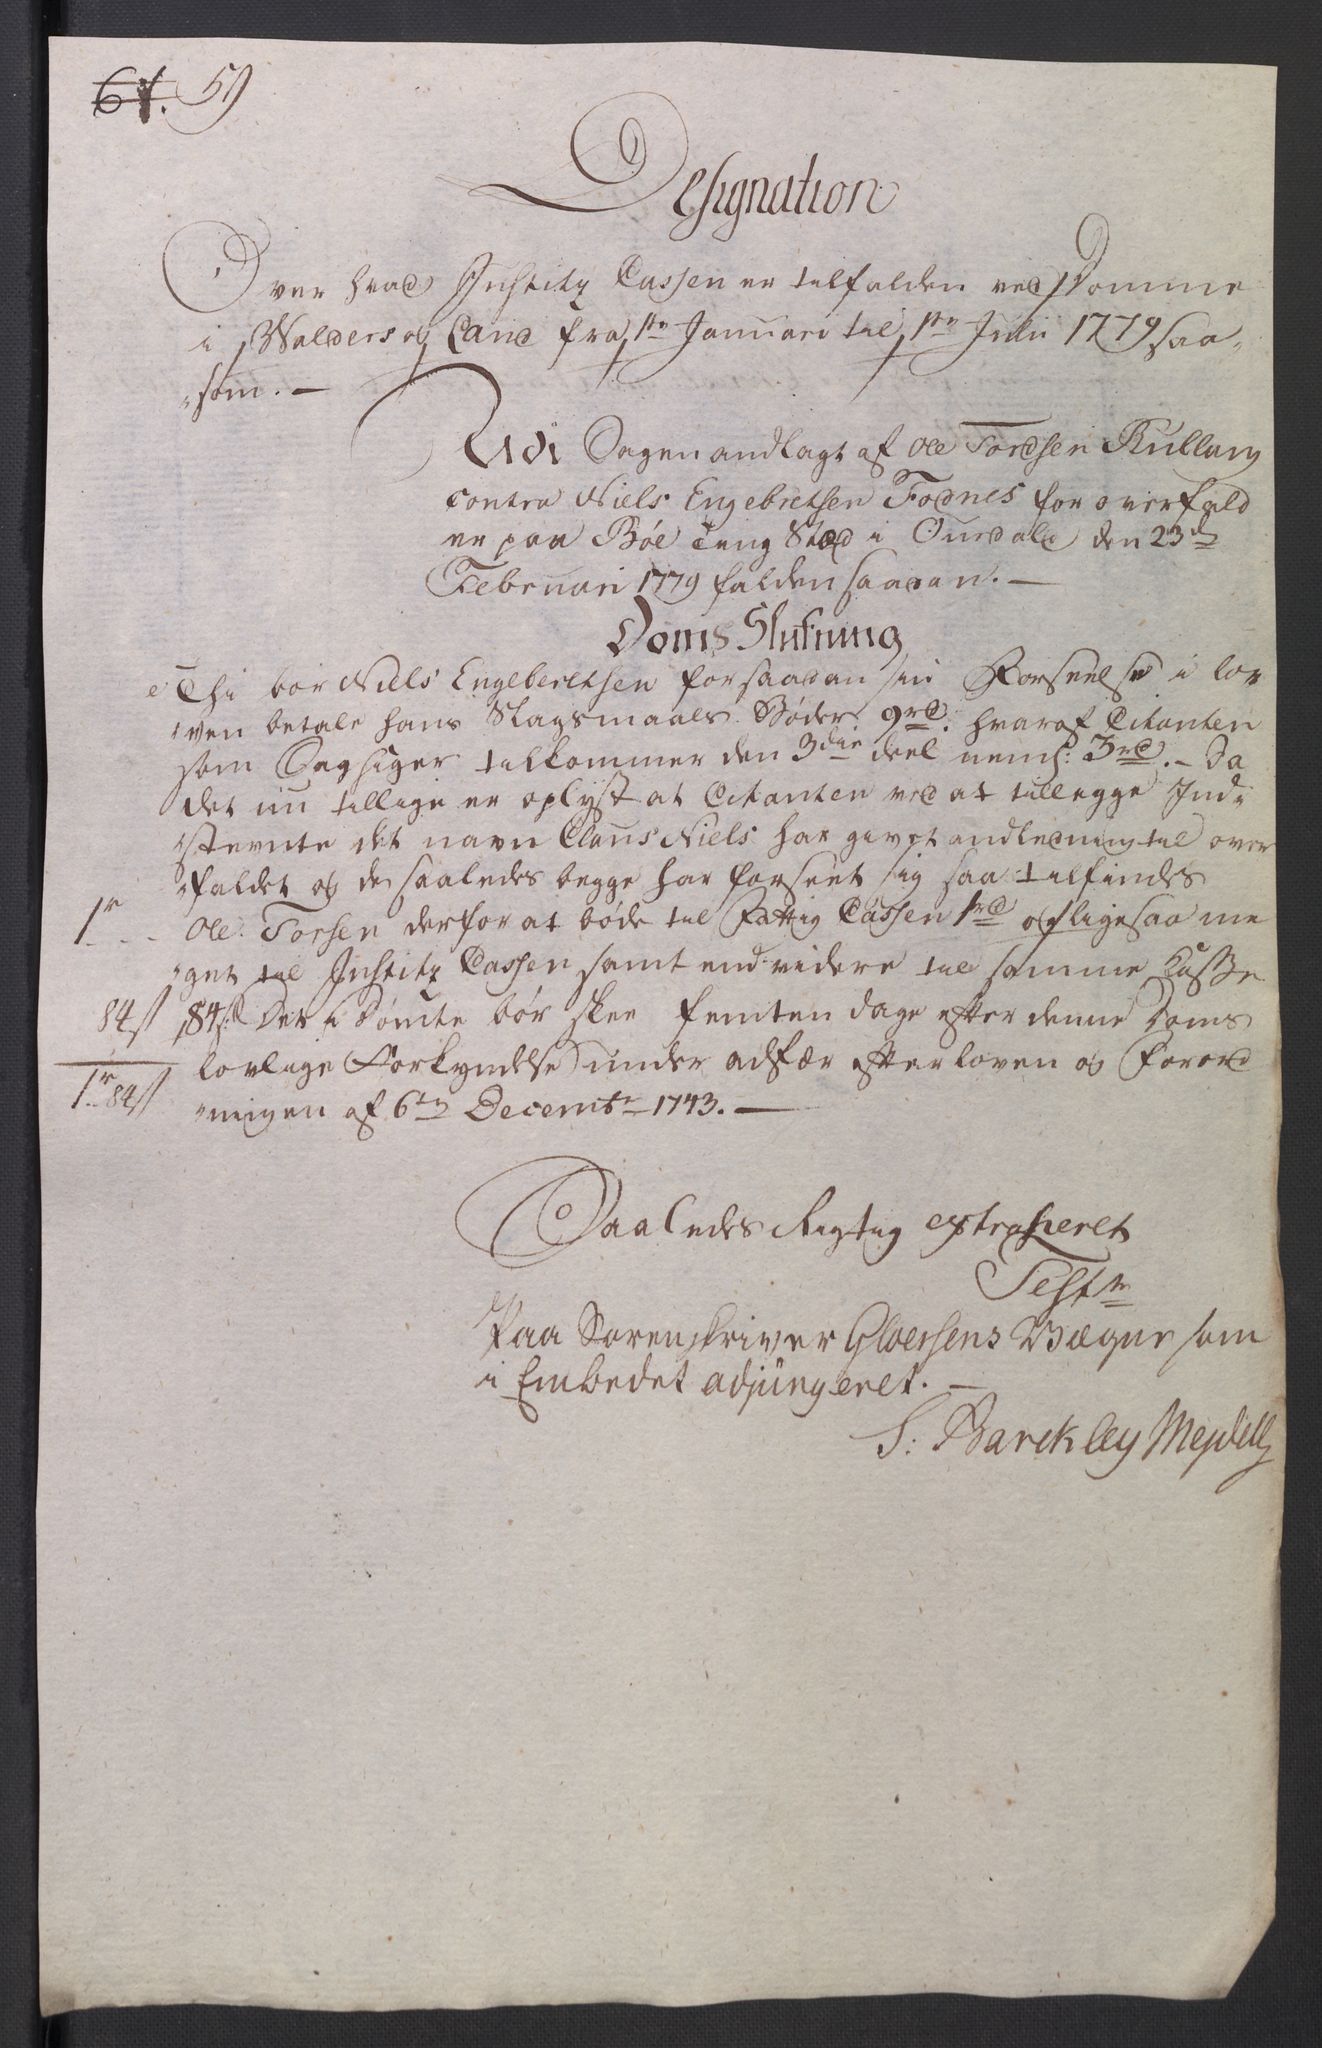 61. 59
Designation
Over hvad Justitz Cassen er tilfalden ved Domme
i Walders og Land fra 1ste Januari til 1ste Julii 1779 saa„
„som. —
Udi Sagen andlagt af Ole Tordsen Kullang
contra Niels Engebretsen Fodnes for overfald
er paa Böe Ting Stæd i Ourdahl den 23de
Februari 1779 falden saadan. —
Doms Slutning
Thi bör Niels Engebretsen for saadan sin Forseelse i lo„
„ven betale hans Slagsmaals Böder 9rd. hvaraf Citanten
som Sagsiger tilkommer den 3die deel neml: 3rd. — Da
det nu tillige er oplyst at Citanten ved at tillegge Ind„
„stevnte det navn Claus Niels har givet andledning til over
„faldet og de saaledes begge har forseet sig saa tilfindes
1r Ole Torsen derfor at böde til Fattig Cassen 1rd og ligesaa me
„get til Justitz Cassen samt end videre til samme Casse
84s 84s: Det i Dömte bör skee femten dage efter denne Doms
lovlige Forkyndelse under adfær efter loven og Forord
1r 84s „ningen af 6te Decembr 1743. —
Saaledes Rigtig extraheret
Test:
Paa Sorenskriver Gloersens Vægne som
i Embedet adjüngeret. —
S: Barckley Mejdell